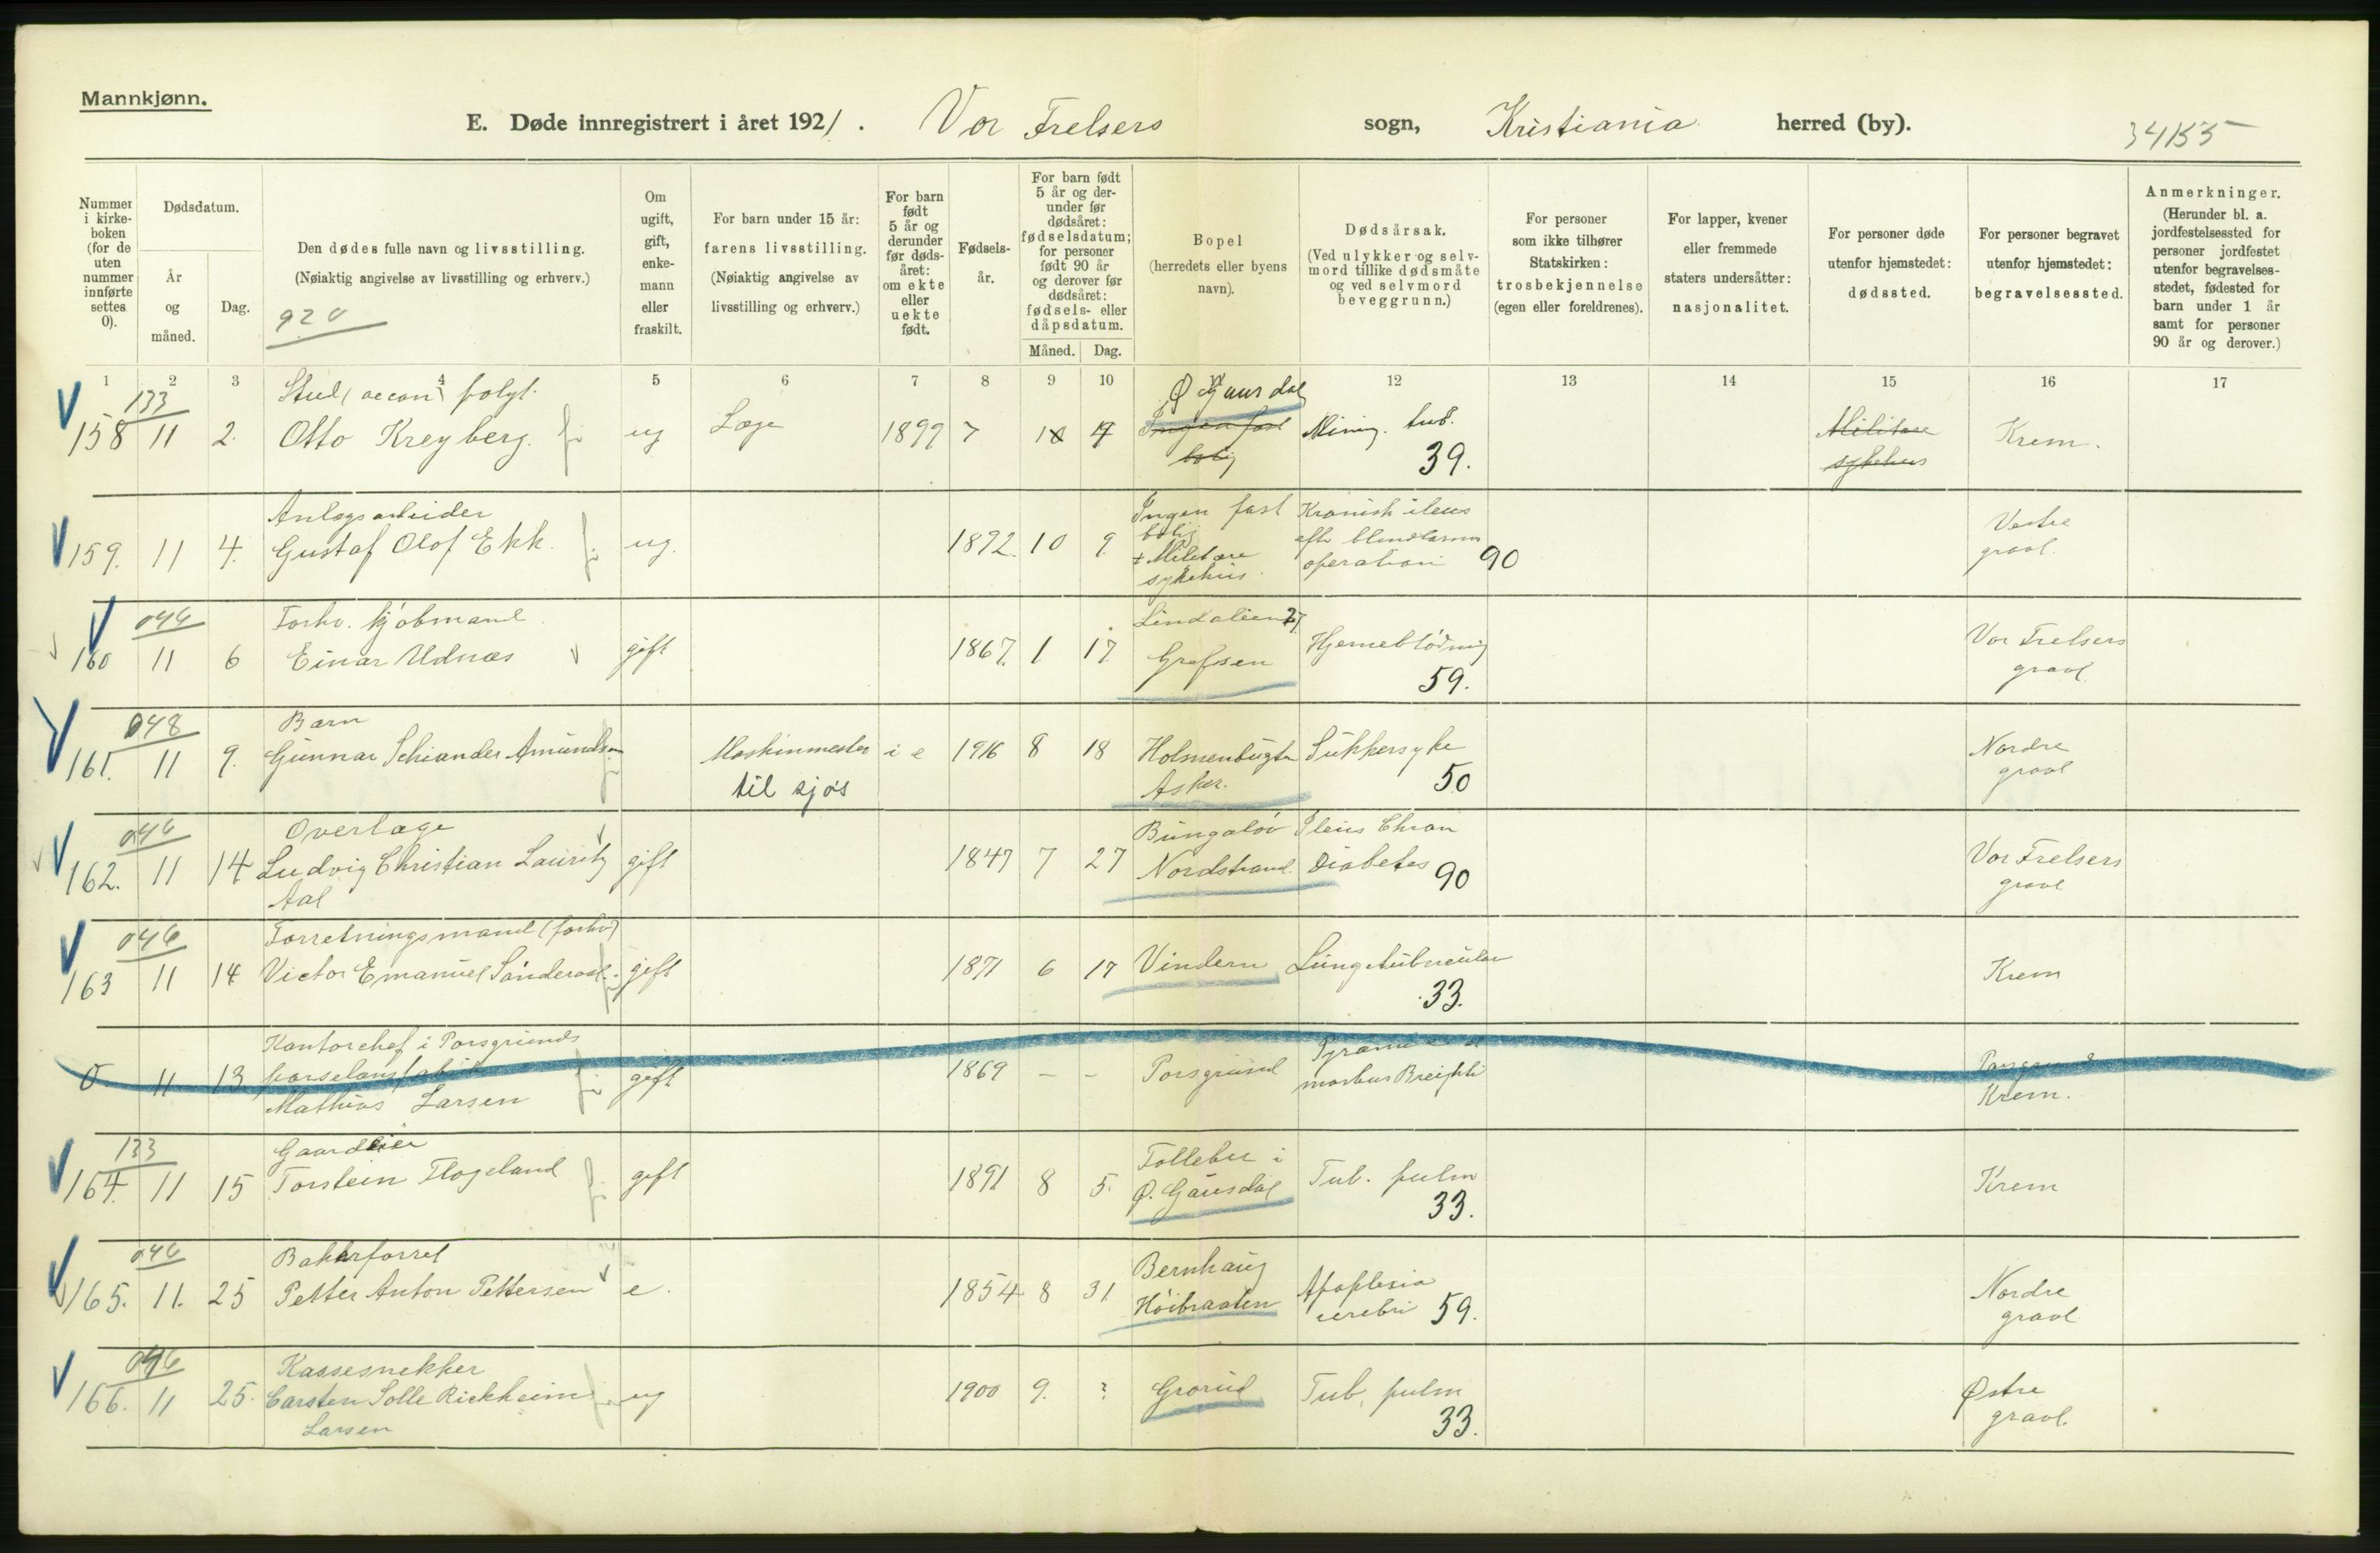 Mannkjønn.
E. Døde innregistrert i året 1921. Vor Frelsers sogn, Kristiania herred (by).
34155
Nummer i kirke-boken (for de uten nummer innførte settes 0).
Dødsdatum.
År og måned.
Dag.
Den dødes fulle navn og livsstilling.
(Nøiaktig angivelse av livsstilling og erhverv.)
920
Om ugift, gift, enke-mann eller fraskilt.
For barn under 15 år: farens livsstilling.
(Nøiaktig angivelse av livsstilling og erhverv.)
For barn født 5 år og derunder før døds-året: om ekte eller uekte født.
Fødsels-år.
For barn født 5 år og der-under før dødsåret: fødselsdatum; for personer født 90 år og derover før dødsåret: fødsels- eller dåpsdatum.
Måned. Dag.
Bopel
(herredets eller byens navn).
Dødsårsak.
(Ved ulykker og selv-mord tillike dødsmåte og ved selvmord beveggrunn.)
For personer som ikke tilhører Statskirken: trosbekjennelse (egen eller foreldrenes).
For lapper, kvener eller fremmede staters undersåtter: nasjonalitet.
For personer døde utenfor hjemstedet: dødssted.
For personer begravet utenfor hjemstedet: begravelsessted.
Anmerkninger.
(Herunder bl. a. jordfestelsessted for personer jordfestet utenfor begravelses-stedet, fødested for barn under 1 år samt for personer 90 år og derover.)
1 2 3 4 5 6 7 8 9 10 12 13 14 15 16 17
133 Stud. oecon. Ø Gausdal
158 11 2. Otto Kreyberg. ug Læge 1899 7 Ingen fast Mining. tub. Militære Krem.
bolig 39. sykehus
Anlægsarbeider Ingen fast Kronisk ileus
159. 11 4. Gustaf Olof Ekk. ug. 1892. 10 9. bolig efter blindtarms Vestre
+ Militære operation 90 gravl.
sykehus.
046 Forhv. kjøbmand Lindalien
160 11 6 Einar Udnæs gift 1867. 1 17. Grefsen Hjerneblødning Vor Frelsers
59. gravl.
048 Barn
161. 11 9. Gunnar Schiander Amundsen Maskinmester i e 1916 8 18 Holmenbugten Sukkersyke Nordre
til sjøs Asker. 50 gravl
046 Overlæge Bungalov Ileus Chron
162. 11 14 Ludvig Christian Lauritz gift 1847 7 27 Nordstrand. Diabetes 90 Vor Frelsers
Aal gravl
046 Forretningsmand (forhv)
163 11 14 Victor Emanuel gift 1871 6 17 Vindern Lungetuberculose Krem
33.
Kontorchef i Porsgrunds
0 11 13 porselænsfabrik gift 1869 - - Porsgrund Porsgrund
Mathias Larsen morbus Brightii Krem.
133 Gaardeier Follebu i
164. 11 15 Torstein Flogeland gift 1891 8 5. Ø. Gausdal Tub. pulm Krem
33.
046 Bakerforret Bernhaug
165. 11. 25 Petter Anton Pettersen e. 1854 8 31 Høibraaten Apoplexia Nordre
cerebri 59. gravl
046 Kassesnekker
166. 11 25. Carsten Solle Rickheim ug 1900 9. ? Grorud Tub. pulm Østre
Larsen 33. gravl.